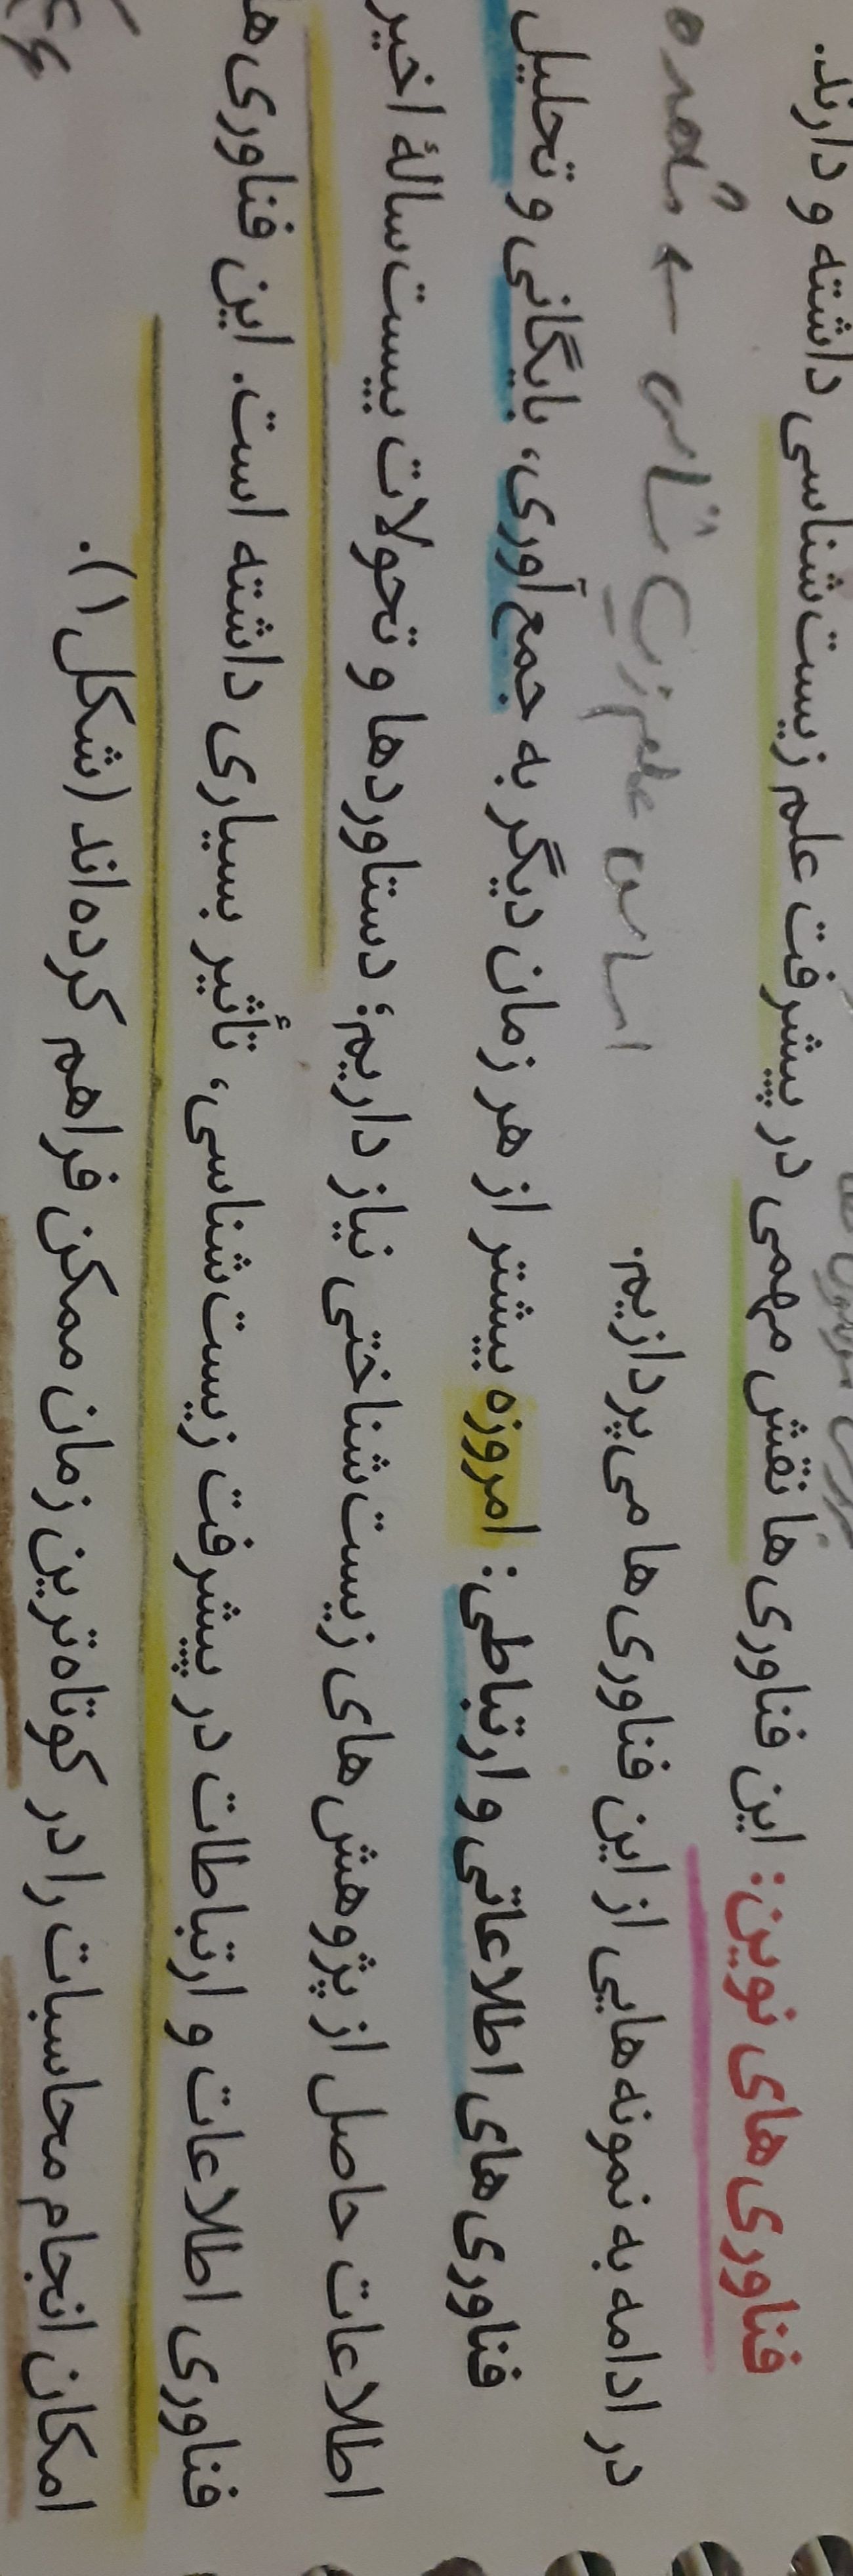 فناوری‌های نوین: این فناوری‌ها نقش مهمی در پیشرفت علم زیست‌شناسی داشته و دارند.
در ادامه به نمونه‌هایی از این فناوری‌ها می‌پردازیم.
فناوری‌های اطلاعاتی و ارتباطی: امروزه بیشتر از هر زمان دیگر به جمع‌آوری، بایگانی و تحلیل
اطلاعات حاصل از پژوهش‌های زیست‌شناختی نیاز داریم؛ دستاوردها و تحولات بیست‌سالۀ اخیر
فناوری اطلاعات و ارتباطات در پیشرفت زیست‌شناسی، تأثیر بسیاری داشته است. این فناوری‌ها
امکان انجام محاسبات را در کوتاه‌ترین زمان ممکن فراهم کرده‌اند (شکل ۱).